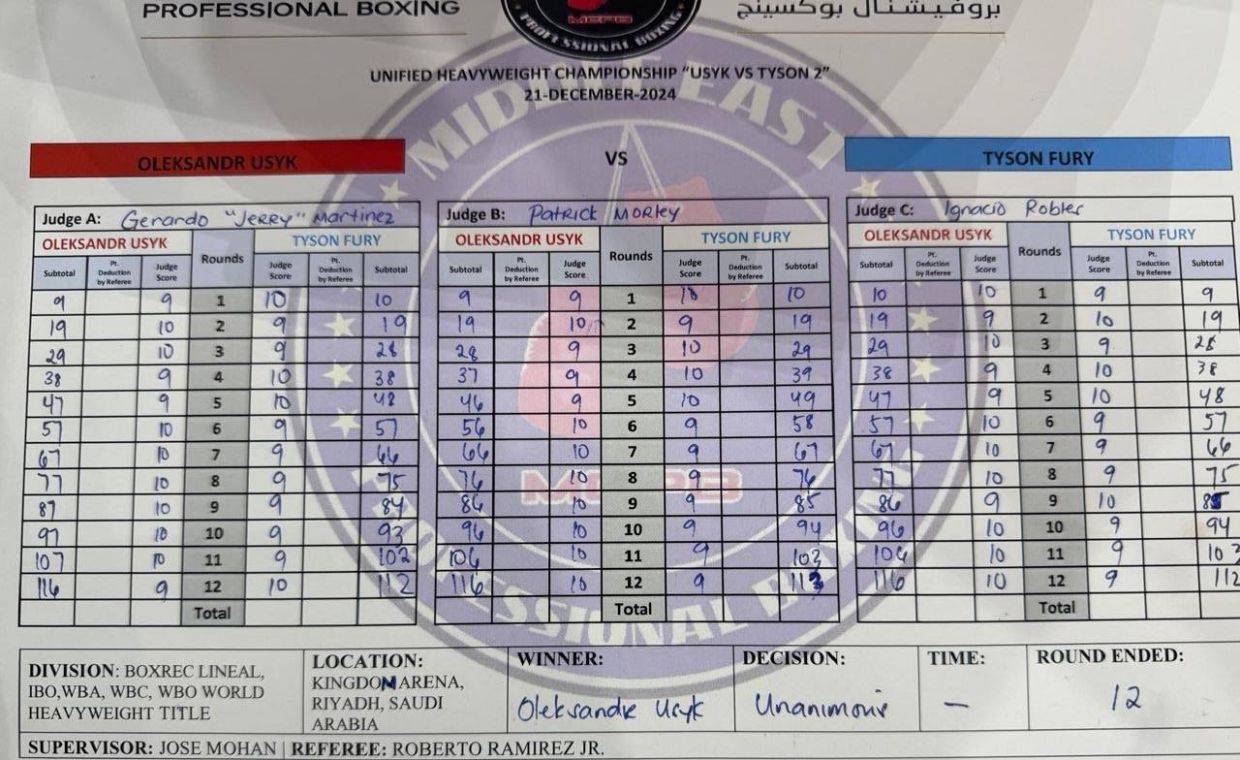 PROFESSIONAL BOXING
بروفيشنال بوكسينج
MEPB
PROFESSIONAL BOXING
UNIFIED HEAVYWEIGHT CHAMPIONSHIP “USYK VS TYSON 2”
21-DECEMBER-2024
MIDDLE EAST
PROFESSIONAL BOXING
MEPB
OLEKSANDR USYK VS TYSON FURY
Judge A: Gerardo "Jerry" Martinez Judge B: Patrick Morley Judge C: Ignacio Robles
OLEKSANDR USYK Rounds TYSON FURY OLEKSANDR USYK Rounds TYSON FURY OLEKSANDR USYK Rounds TYSON FURY
Subtotal Pt. Deduction by Referee Judge Score Judge Score Pt. Deduction by Referee Subtotal Subtotal Pt. Deduction by Referee Judge Score Judge Score Pt. Deduction by Referee Subtotal Subtotal Pt. Deduction by Referee Judge Score Judge Score Pt. Deduction by Referee Subtotal
9 9 1 10 10 9 9 1 10 10 10 10 1 9 9
19 10 2 9 19 19 10 2 9 19 19 9 2 10 19
29 10 3 9 28 28 9 3 10 29 29 10 3 9 28
38 9 4 10 38 37 9 4 10 39 38 9 4 10 38
47 9 5 10 48 46 9 5 10 49 47 9 5 10 48
57 10 6 9 57 56 10 6 9 58 57 10 6 9 57
67 10 7 9 66 66 10 7 9 67 67 10 7 9 66
77 10 8 9 75 76 10 8 9 76 77 10 8 9 75
87 10 9 9 84 86 10 9 9 85 86 9 9 10 85
97 10 10 9 93 96 10 10 9 94 96 10 10 9 94
107 10 11 9 102 106 10 11 9 103 106 10 11 9 103
116 9 12 10 112 116 10 12 9 112 116 10 12 9 112
Total Total Total
DIVISION: BOXREC LINEAL,
IBO,WBA, WBC, WBO WORLD
HEAVYWEIGHT TITLE
LOCATION:
KINGDOM ARENA,
RIYADH, SAUDI
ARABIA
WINNER:
Oleksandr Usyk
DECISION:
Unanimous
TIME:
—
ROUND ENDED:
12
SUPERVISOR: JOSE MOHAN | REFEREE: ROBERTO RAMIREZ JR.